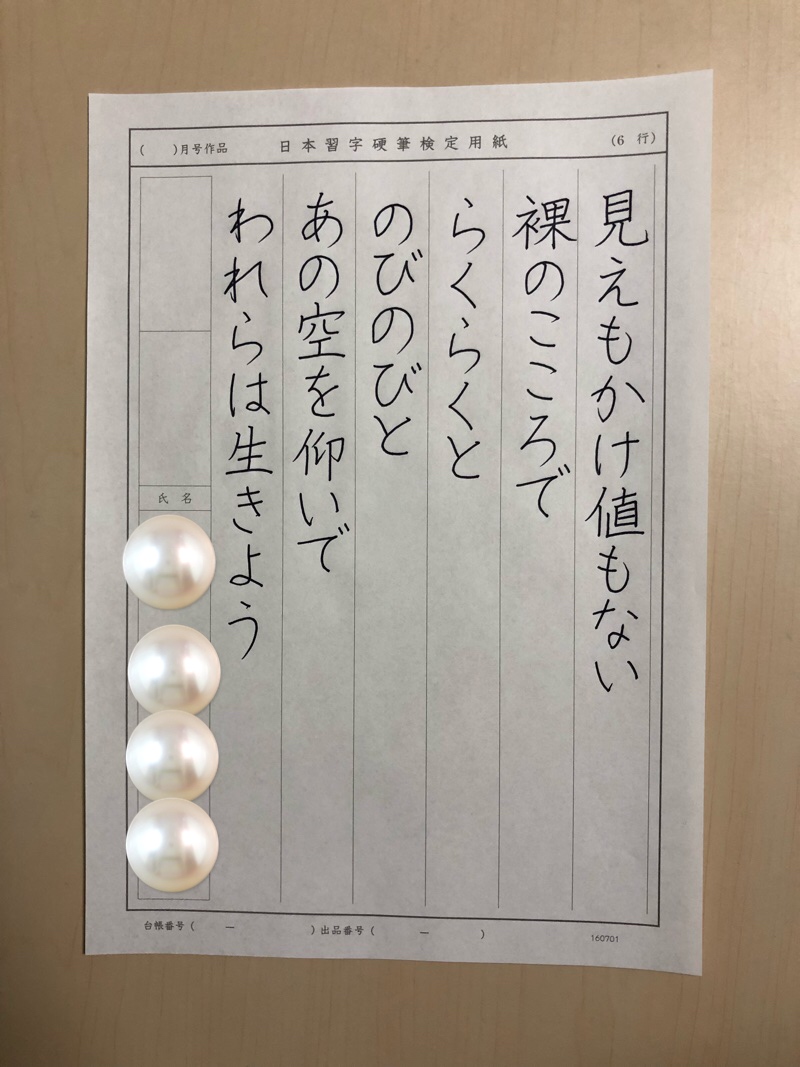 ( )月号作品 日本習字硬筆検定用紙 (6 行)
見えもかけ値もない
裸のこころで
らくらくと
のびのびと
あの空を仰いで
われらは生きよう
氏名
台帳番号( ー )出品番号( ー )
160701